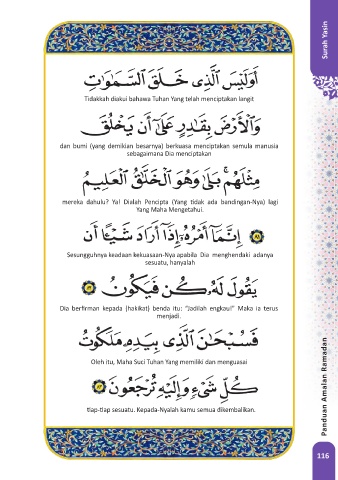 Surah Yasin
أَوَلَيْسَ ٱلَّذِى خَلَقَ ٱلسَّمَـٰوَٰتِ
Tidakkah diakui bahawa Tuhan Yang telah menciptakan langit
وَٱلْأَرْضَ بِقَـٰدِرٍ عَلَىٰٓ أَن يَخْلُقَ
dan bumi (yang demikian besarnya) berkuasa menciptakan semula manusia
sebagaimana Dia menciptakan
مِثْلَهُم ۚ بَلَىٰ وَهُوَ ٱلْخَلَّـٰقُ ٱلْعَلِيمُ
mereka dahulu? Ya! Dialah Pencipta (Yang tidak ada bandingan-Nya) lagi
Yang Maha Mengetahui.
٨١ إِنَّمَآ أَمْرُهُۥٓ إِذَآ أَرَادَ شَيْـًٔا أَن
Sesungguhnya keadaan kekuasaan-Nya apabila Dia menghendaki adanya
sesuatu, hanyalah
يَقُولَ لَهُۥ كُن فَيَكُونُ ٨٢
Dia berfirman kepada (hakikat) benda itu: "Jadilah engkau!" Maka ia terus
menjadi.
فَسُبْحَـٰنَ ٱلَّذِى بِيَدِهِۦ مَلَكُوتُ
Oleh itu, Maha Suci Tuhan Yang memiliki dan menguasai
كُلِّ شَىْءٍ وَإِلَيْهِ تُرْجَعُونَ ٨٣
tiap-tiap sesuatu. Kepada-Nyalah kamu semua dikembalikan.
Panduan Amalan Ramadan
116